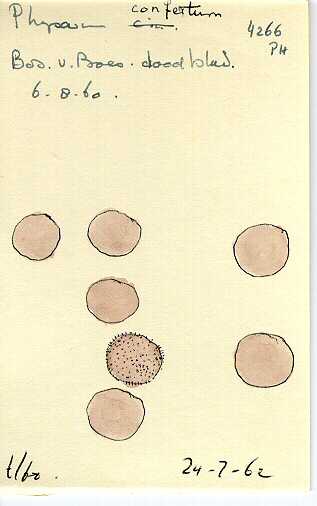 Physarum confertum
cin.
4266
PH
Bos. v. Boes. dood blad.
6-8-60.
t/60.
24-7-62